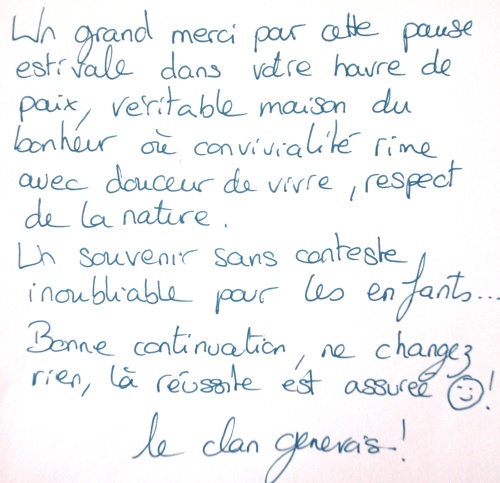 Un grand merci par cette pause
estivale dans votre havre de
paix, véritable maison du
bonheur où convivialité rime
avec douceur de vivre, respect
de la nature.
Un souvenir sans conteste
inoubliable pour les enfants...
Bonne continuation, ne changez
rien, là réussite est assurée ☺!
le clan genevois!